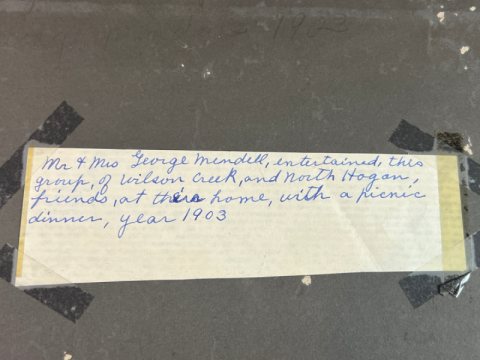 1903
Mr & Mrs George Mendell, entertained, this
group, of Wilson Creek, and North Hogan,
friends, at their home, with a picnic
dinner, year 1903